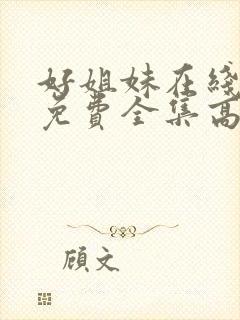 好姐妹在线
免费全集高
顾文